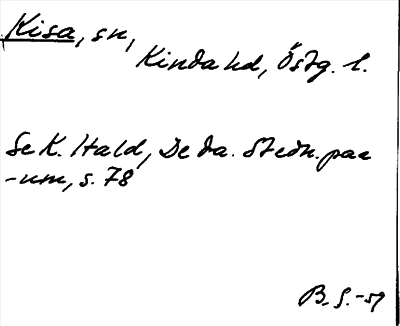 Kisa, sn,
Kinda hd, Östg. l.
Se K. Hald, De da. Stedn. paa
-um, s. 78
B. S.-59